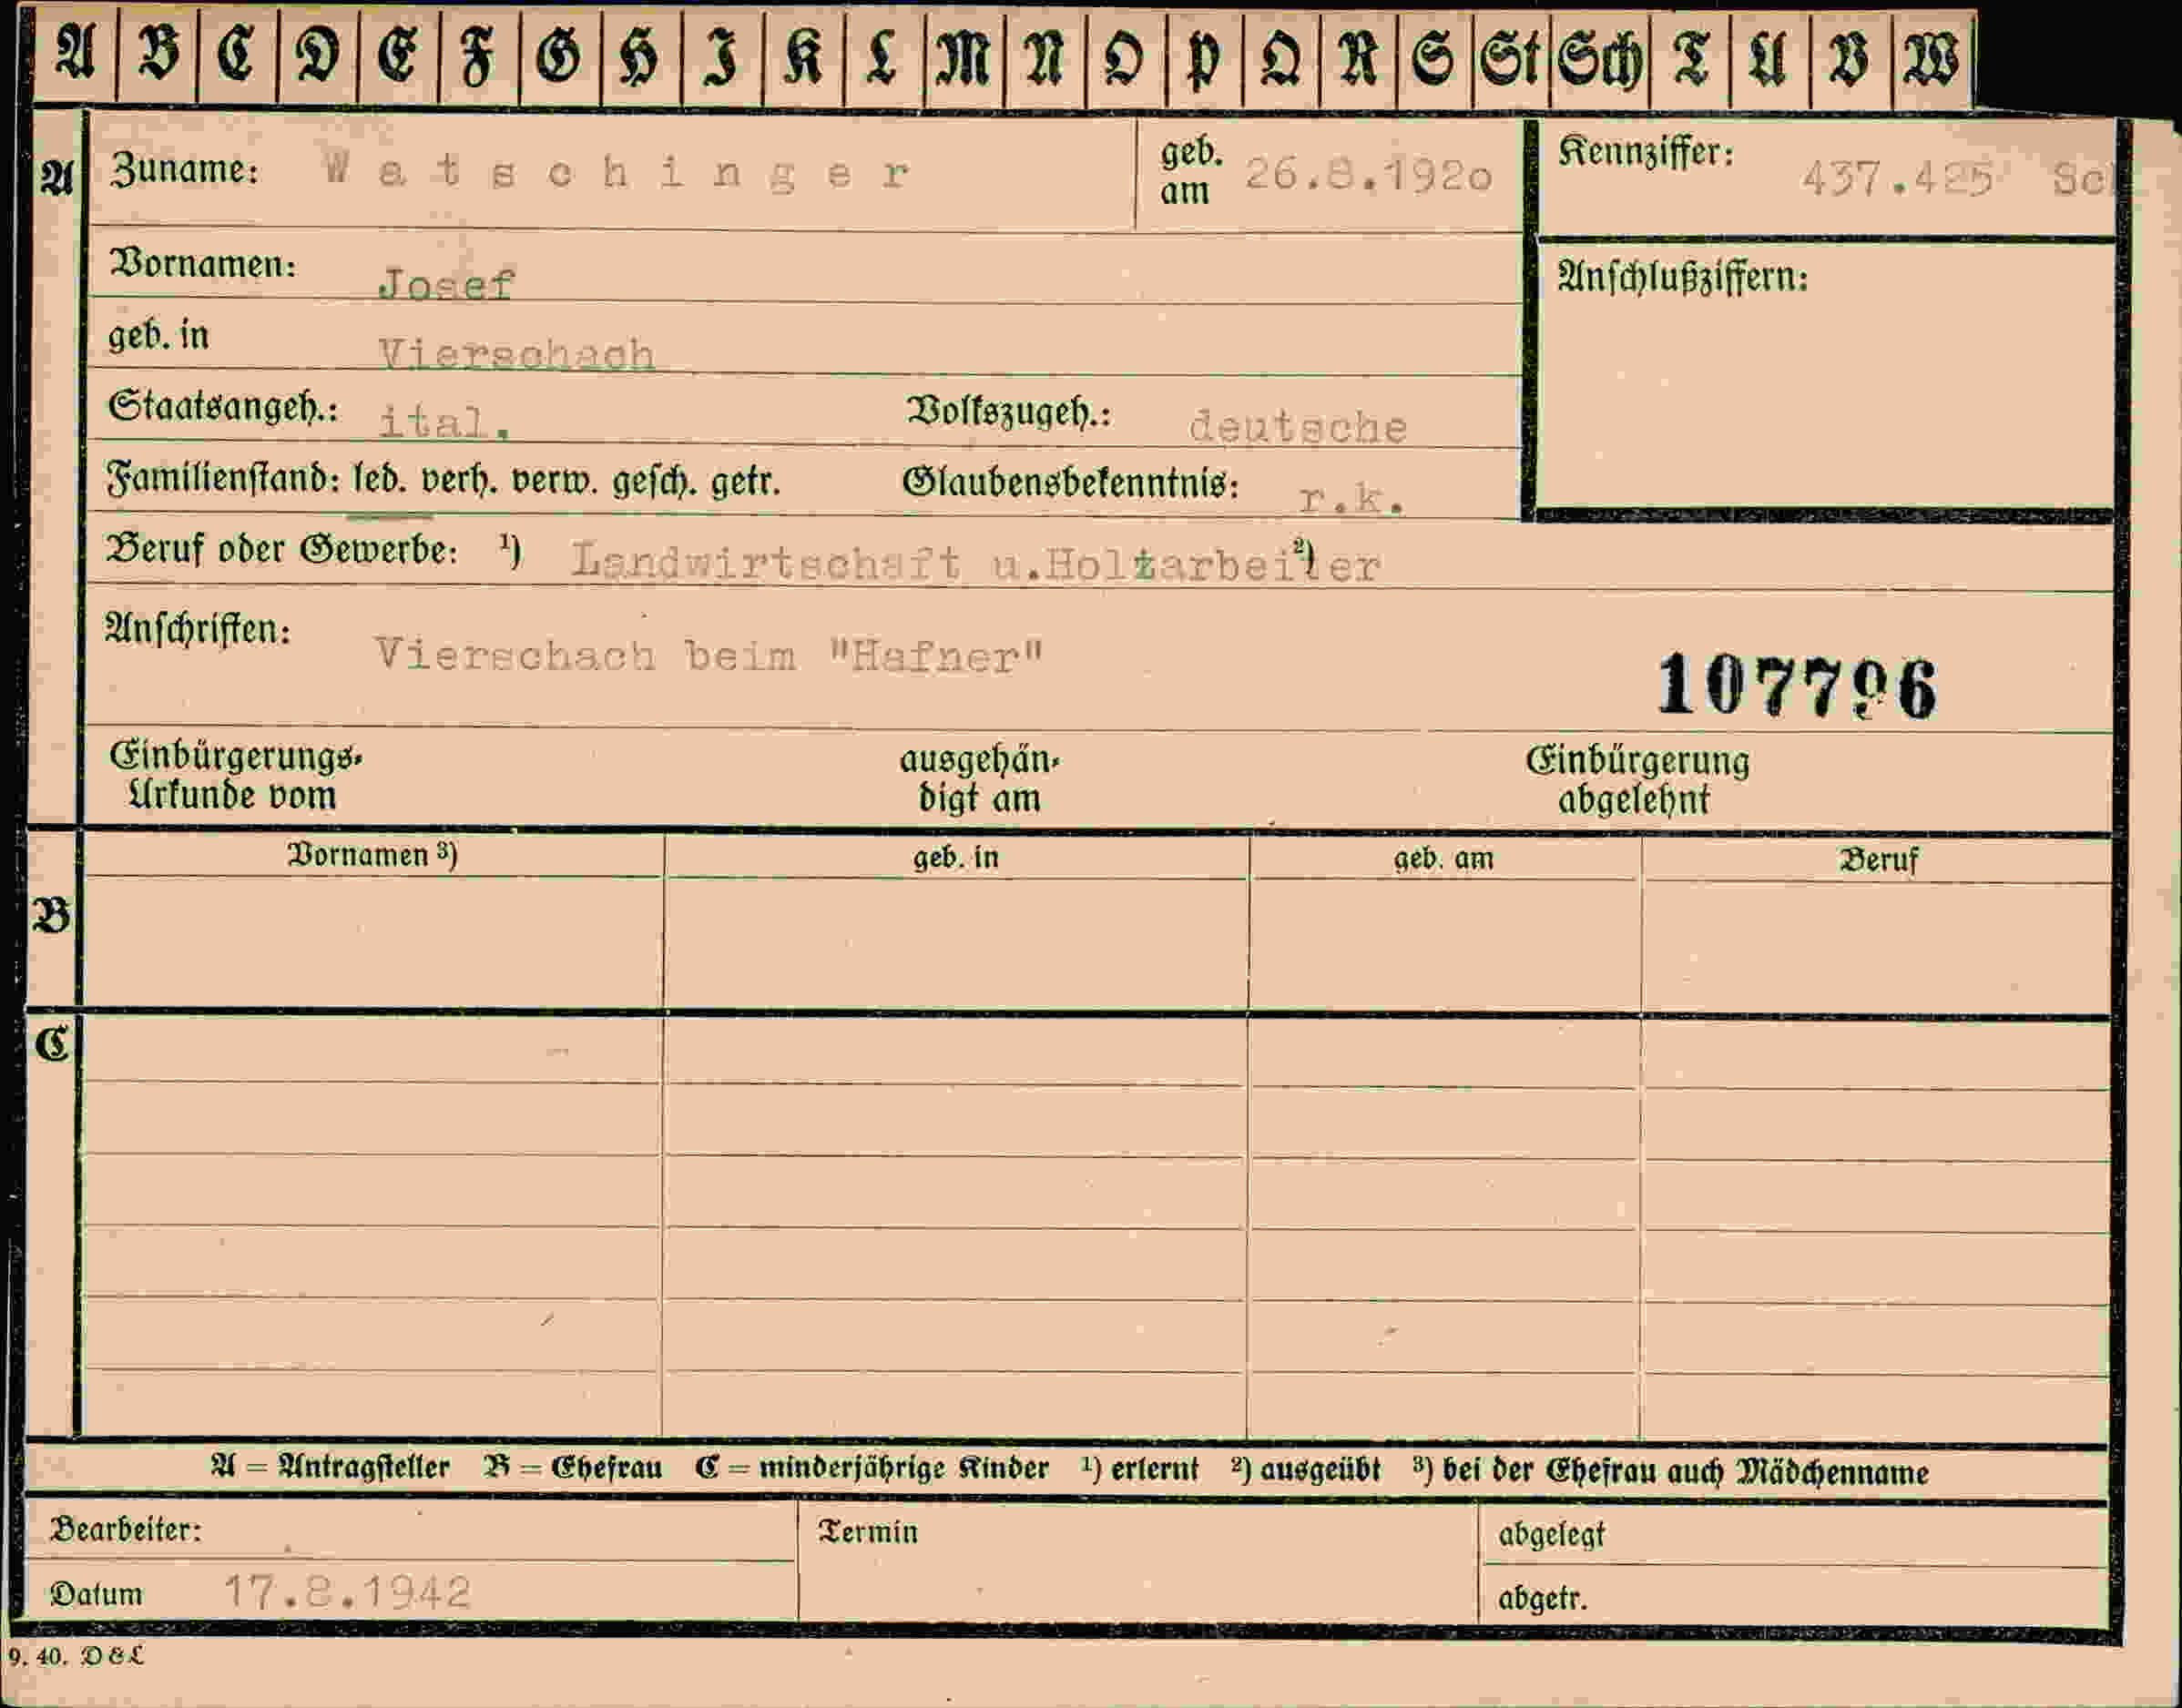 A B C D E F G H I K L M N O P Q R S St Sch T U V W
A Zuname: Watschinger geb. am 26.8.1920 Kennziffer: 437.425 Sch
Vornamen: Josef Anschlußziffern:
geb. in Vierschach
Staatsangeh.: ital. Volkszugeh.: deutsche
Familienstand: led. verh. verw. gesch. getr. Glaubensbekenntnis: r.k.
Beruf oder Gewerbe: ¹) Landwirtschaft u.Holzarbeiter ²)
Anschriften: Vierschach beim "Hafner"
107796
Einbürgerungs- ausgehän- Einbürgerung
Urkunde vom digt am abgelehnt
Vornamen ³) geb. in geb. am Beruf
B
C
A = Antragsteller B = Ehefrau C = minderjährige Kinder ¹) erlernt ²) ausgeübt ³) bei der Ehefrau auch Mädchenname
Bearbeiter: Termin abgelegt
Datum 17.8.1942 abgetr.
9. 40. D & L